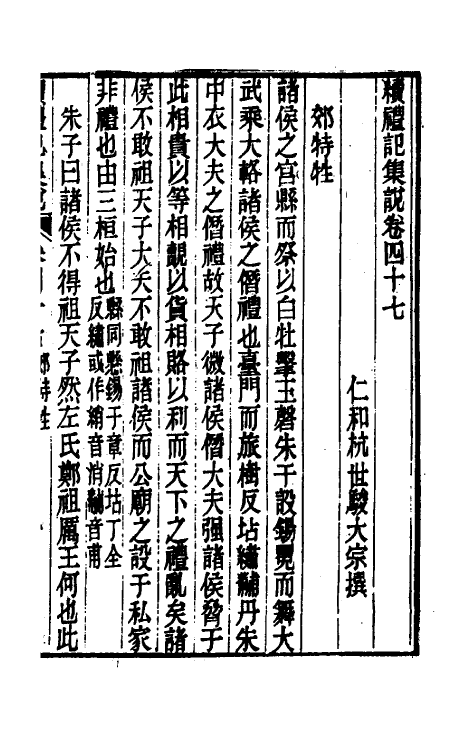 續禮記集說卷四十七
仁和杭世駿大宗撰
郊特牲
諸侯之宮縣而祭以白牡擊玉磬朱干設錫冕而舞大
武乘大輅諸侯之僭禮也臺門而旅樹反坫繡黼丹朱
中衣大夫之僭禮故天子微諸侯僭大夫强諸侯脅于
此相貴以等相覿以貨相賂以利而天下之禮亂矣諸
侯不敢祖天子大夫不敢祖諸侯而公廟之設于私家
非禮也由三桓始也
縣同懸錫于章反坫丁全
反繡或作綃音消黼音甫
朱子曰諸侯不得祖天子然左氏鄭祖厲王何也此
郊特牲